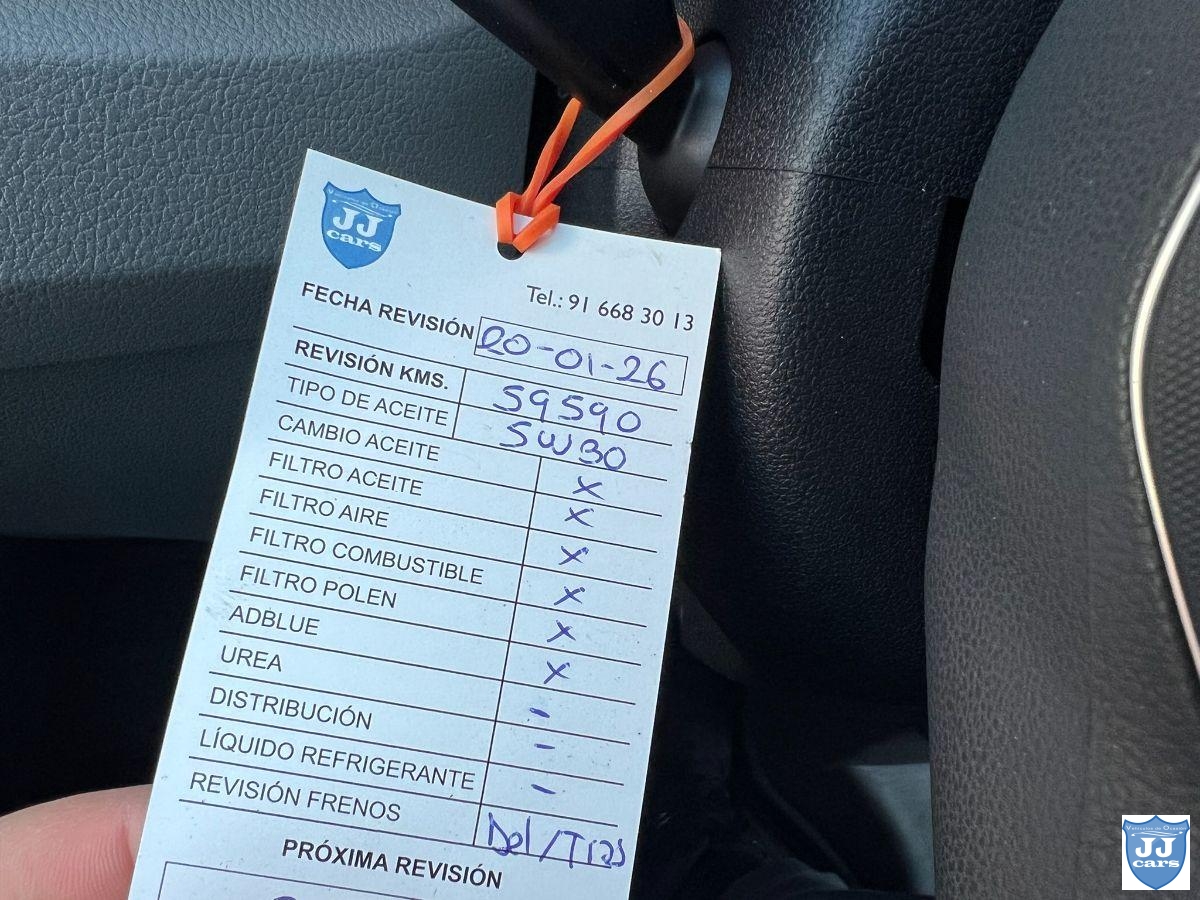 Vehículos de Ocasión
JJ
cars
Tel.: 91 668 30 13
FECHA REVISIÓN 20-01-26
REVISIÓN KMS. 59590
TIPO DE ACEITE 5W30
CAMBIO ACEITE x
FILTRO ACEITE x
FILTRO AIRE x
FILTRO COMBUSTIBLE x
FILTRO POLEN x
ADBLUE x
UREA -
DISTRIBUCIÓN -
LÍQUIDO REFRIGERANTE -
REVISIÓN FRENOS Del/Tras
PRÓXIMA REVISIÓN
Vehículos de Ocasión
JJ
cars